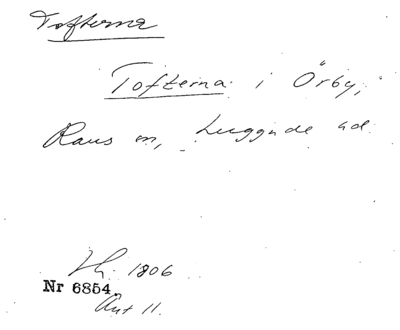 Tofterna
Tofterna i Örby,
Raus sn, Luggude hd
Lh. 1806
Nr 6854.
Ant 11.